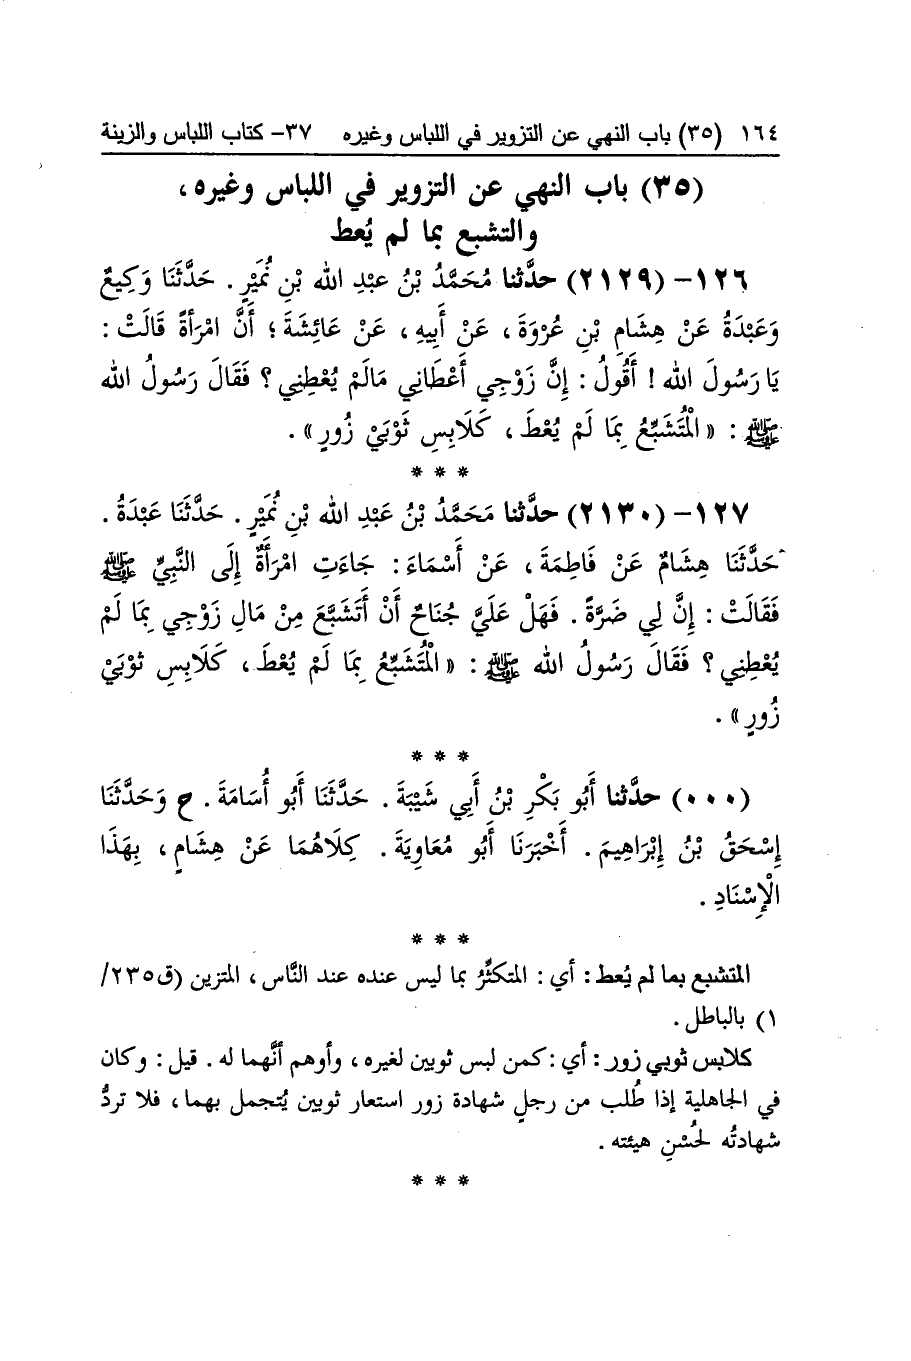 ١٦٤ (٣٥) باب النهي عن التزوير في اللباس وغيره ٣٧- كتاب اللباس والزينة
(٣٥) باب النهي عن التزوير في اللباس وغيره،
والتشبع بما لم يُعط
١٢٦- (٢١٢٩) حدَّثنا مُحَمَّدُ بْنُ عبْدِ الله بْنِ نُمَيْرٍ. حَدَّثَنَا وَكِيعٌ
وَعَبْدَةُ عَنْ هِشَامِ بْنِ عُرْوَةَ، عَنْ أَبِيهِ، عَنْ عَائِشَةَ؛ أَنَّ امْرَأَةً قَالَتْ:
يَا رَسُولَ الله! أَقُولُ: إِنَّ زَوْجِي أَعْطَانِي مَالَمْ يُعْطِنِي؟ فَقَالَ رَسُولُ الله
ﷺ: «الْمُتَشَبِّعُ بِمَا لَمْ يُعْطَ، كَلَابِسِ ثَوْبَيْ زُورٍ».
* * *
١٢٧- (٢١٣٠) حدَّثنا مَحَمَّدُ بْنُ عَبْدِ الله بْنِ نُمَيْرٍ. حَدَّثَنَا عَبْدَةُ.
حَدَّثَنَا هِشَامٌ عَنْ فَاطِمَةَ، عَنْ أَسْمَاءَ: جَاءَتِ امْرَأَةٌ إِلَى النَّبِيِّ ﷺ
فَقَالَتْ: إِنَّ لِي ضَرَّةً. فَهَلْ عَلَيَّ جُنَاحٌ أَنْ أَتَشَبَّعَ مِنْ مَالِ زَوْجِي بِمَا لَمْ
يُعْطِنِي؟ فَقَالَ رَسُولُ الله ﷺ: «الْمُتَشَبِّعُ بِمَا لَمْ يُعْطَ، كَلَابِسِ ثوْبَيْ
زُورٍ».
* * *
(٠٠٠) حدَّثنا أَبُو بَكْرِ بْنُ أَبِي شَيْبَةَ. حَدَّثَنَا أَبُو أُسَامَةَ. ح وَحَدَّثَنَا
إِسْحَقُ بْنُ إِبْرَاهِيمَ. أَخْبَرَنَا أَبُو مُعَاوِيَةَ. كِلَاهُمَا عَنْ هِشَامٍ، بِهَذَا
الْإِسْنَادِ.
* * *
المتشبع بما لم يُعط: أي: المتكثِّرُ بما ليس عنده عند النَّاس، المتزين (ق٢٣٥/
١) بالباطل.
كلابس ثوبي زور: أي: كمن لبس ثوبين لغيره، وأوهم أنَّهما له. قيل: وكان
في الجاهلية إذا طُلب من رجلٍ شهادة زور استعار ثوبين يُتجمل بهما، فلا تردُّ
شهادتُه لحُسْنِ هيئته.
* * *